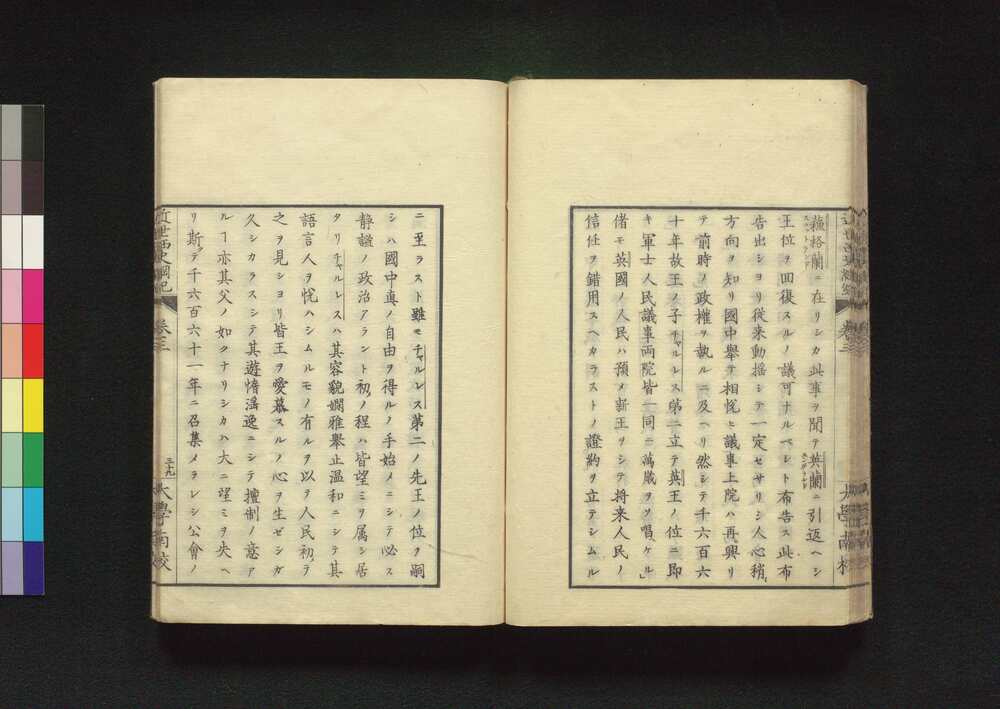 蘇格蘭ニ在リシカ此事ヲ聞テ英蘭ニ引返ヘシ
スコットランド
エングランド
王位ヲ回復スルノ議可ナルベシト布告ス此布
告出シヨリ従来動揺シテ一定セサリシ人心稍
方向ヲ知リ國中舉テ相恱ヒ議事上院ハ再興リ
テ前時ノ政權ヲ執ルニ及ヘリ然シテ千六百六
十年故王ノ子チャルレス第二立テ英王ノ位ニ即
キ軍士人民議事両院皆一同ニ萬歳ヲ唱ケル」
偖モ英國ノ人民ハ預メ新王ヲシテ将来人民ノ
信任ヲ錯用スヘカラストノ證約ヲ立テシムル
大學南校
ニ至ラスト雖モチャルレス第二ノ先王ノ位ヲ嗣
シハ國中真ノ自由ヲ得ルノ手始メニシテ必ス
静謐ノ政治アラント初ノ程ハ皆望ミヲ属シ居
タリチャルレスハ其容貌嫻雅舉止温和ニシテ其
語言人ヲ恱ハシムルモノ有ルヲ以テ人民初テ
之ヲ見シヨリ皆王ヲ愛慕スルノ心ヲ生ゼシガ
久シカラスシテ其遊惰滛逸ニシテ擅制ノ意ア
ルヿ亦其父ノ如クナリシカハ大ニ望ミヲ失ヘ
リ斯テ千六百六十一年ニ召集メラレシ公會ノ
近世西史綱紀 卷三 三十九 大學南校